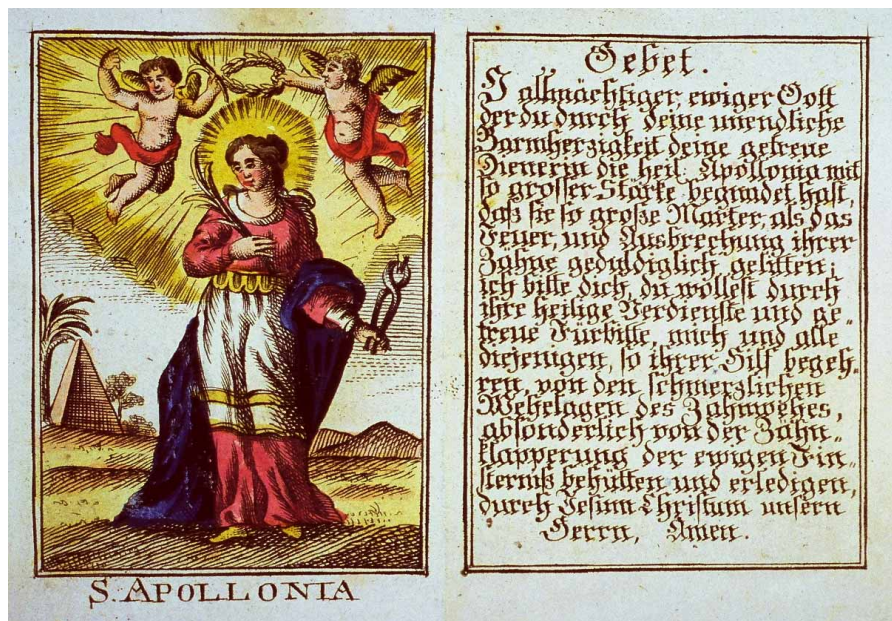 S. APOLLONIA
Gebet.
O allmächtiger, ewiger Gott
der du durch deine unendliche
Barmherzigkeit deine getreue
Dienerin die heil. Apollonia mit
so grosser Stärke begnadet hast,
daß sie so große Marter, als das
Feuer, und Ausbrechung ihrer
Zähne geduldiglich gelitten;
ich bitte dich, du wollest durch
ihre heilige Verdienste und ge-
treue Fürbitte, mich und alle
diejenigen, so ihrer Hilf begeh-
ren, von den schmerzlichen
Wehetagen des Zahnwehes,
absonderlich von der Zähn-
klapperung der ewigen Fin-
sterniß behütten und erledigen,
durch Jesum Christum unsern
Herrn, Amen.